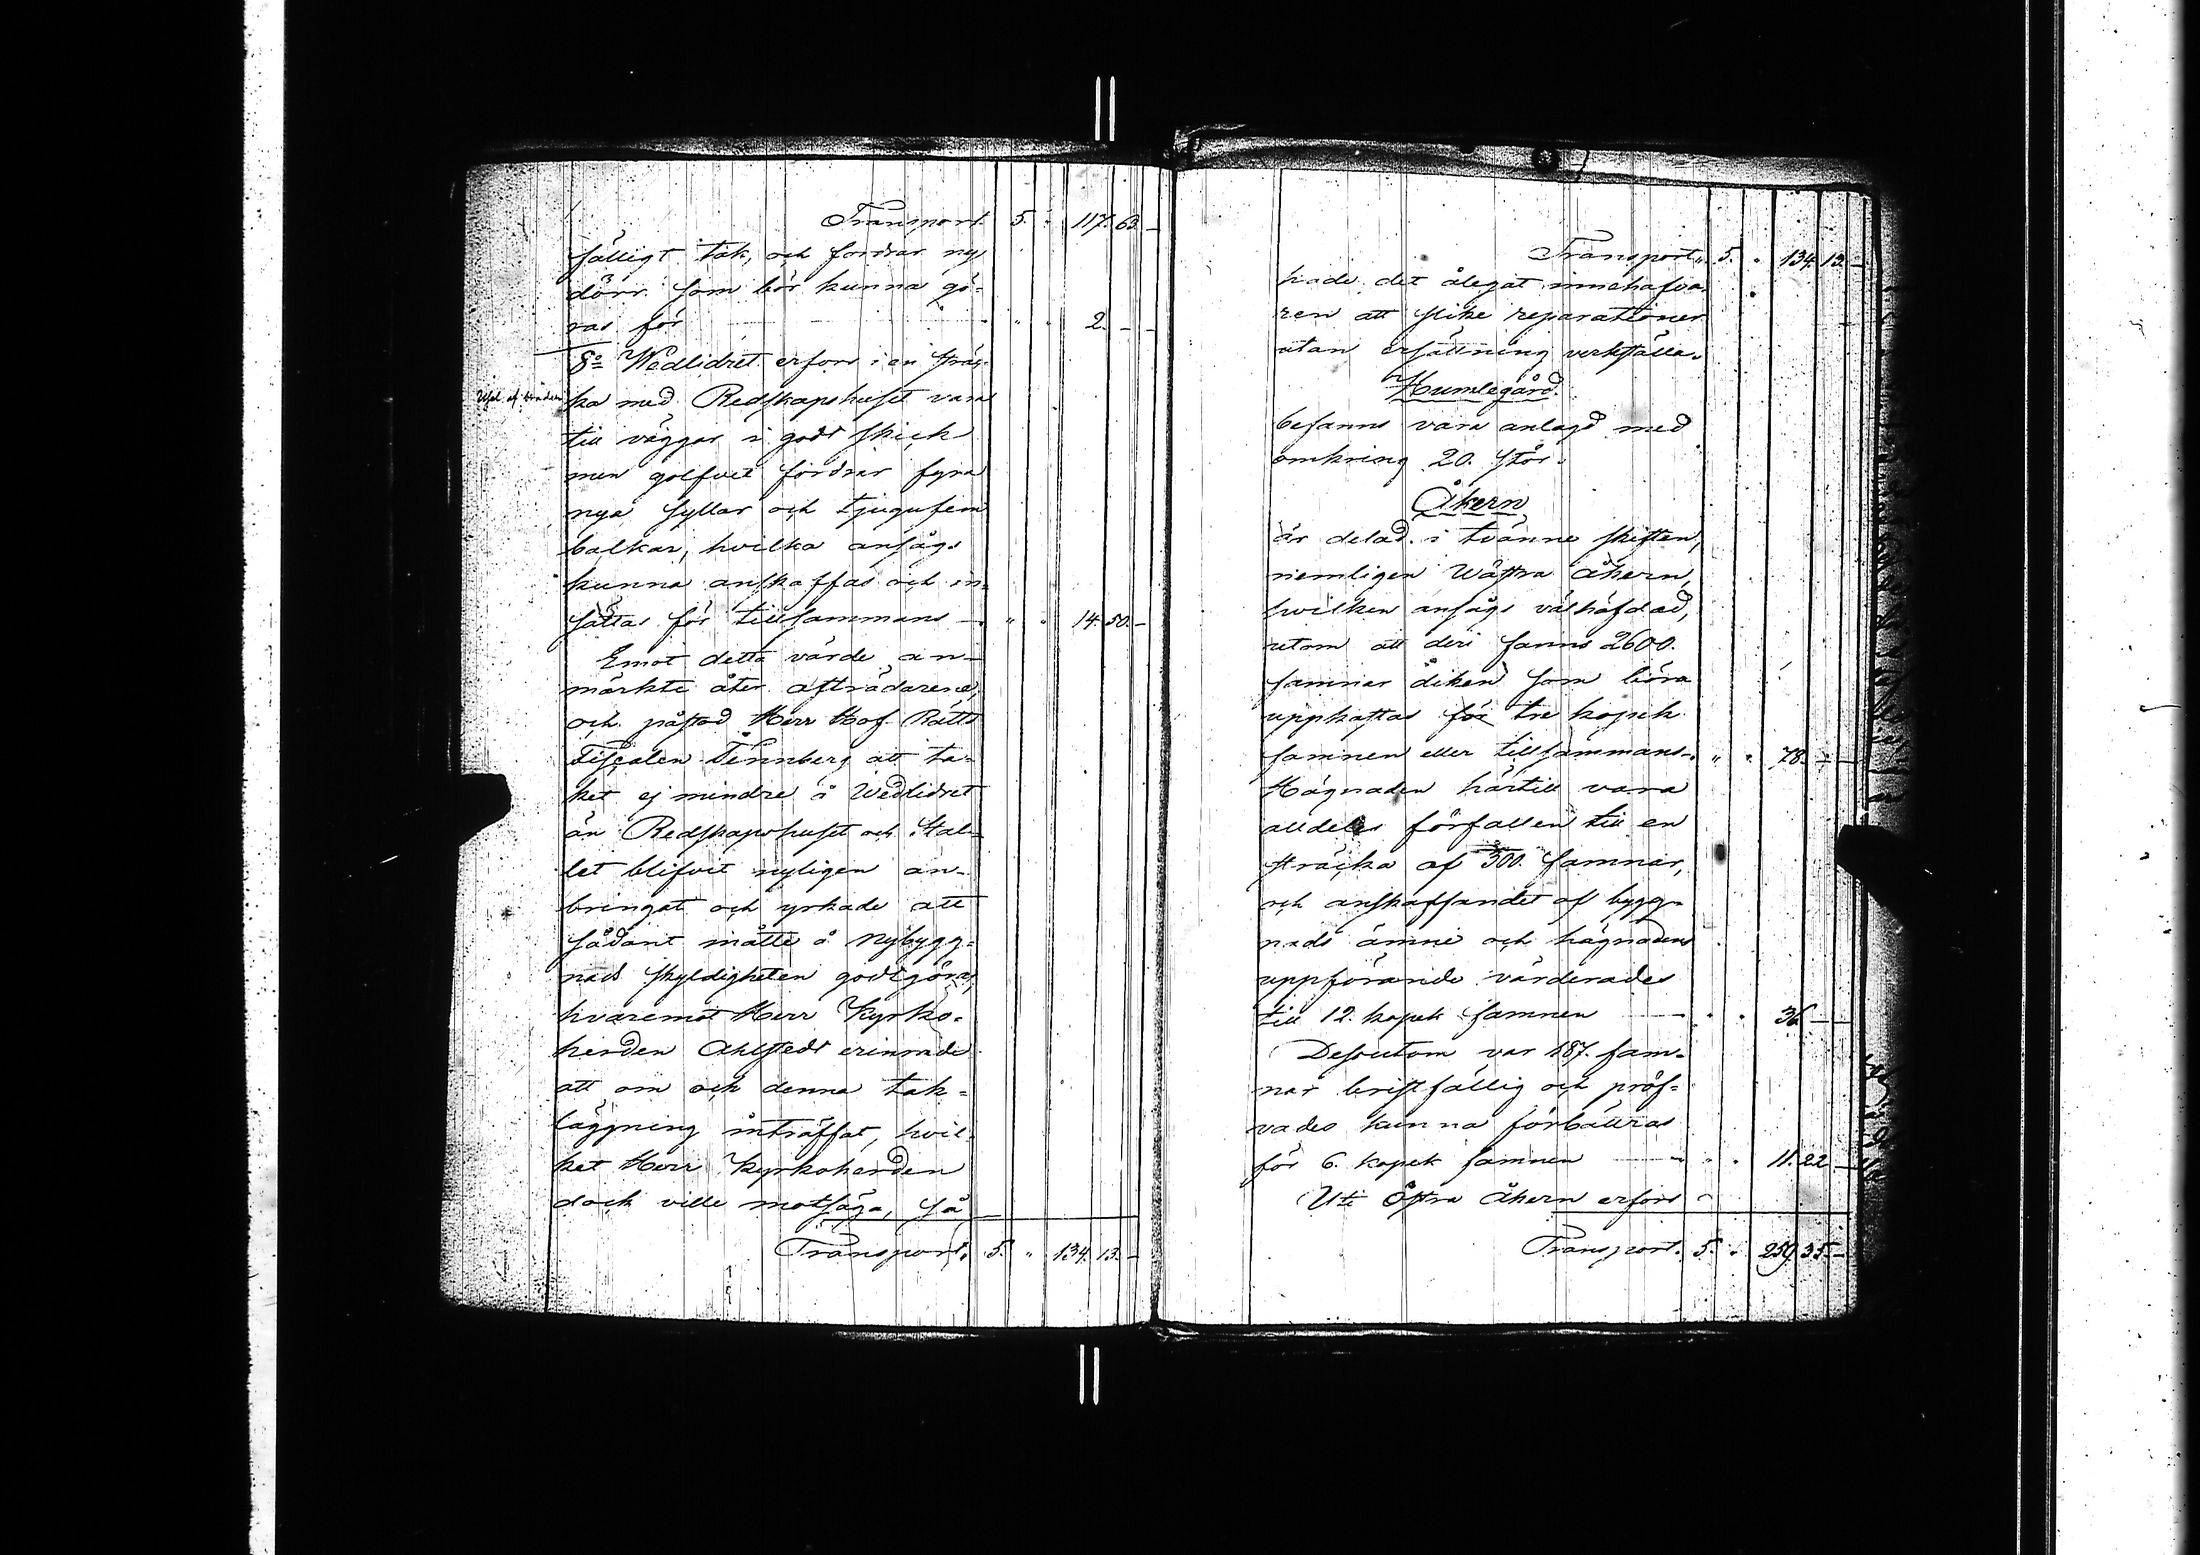 Transport. 5. " 117. 63. -
fälligt tak, och fordrar ny
dörr som bör kunna gö-
ras för " " 2. - -
8:o Wedlidret erfors i en sträc-
ka med Redskapshuset vara
till väggar i godt skick
men golfvet fordrar fyra
nya syllar och tjugufem
balkar, hvilka ansågs
kunna anskaffas och in-
sättas för tillsammans - " " 14. 50. -
Emot detta värde an-
märkte åter afträdarene,
och påstod Herr Hof Rätts
Fiscalen Tennberg att ta-
ket ej mindre å Wedlidret
än Redskapshuset och Stal-
let blifvit nyligen an-
bringat och yrkade att
sådant måtte å nybygg-
nads skyldigheten godtgöras,
hvaremot Herr Kyrko-
herden Ahlstedt erinrade
att om och denna tak-
läggning inträffat, hvil-
ket Herr Kyrkoherden
dock ville motsäga, så
Transport. 5. " 134. 13. -
Transport. 5. " 134. 13. -
hade det ålegat innehafva-
ren att slike reparationer
utan ersättning verkställa.
Humlegård.
befanns vara anlagd med
omkring 20. stör.
Åkern
är delad i tvänne skiften,
nemligen Wästra åkern,
hvilken ansågs välhäfdad,
utom att deri fanns 2600.
famnar diken som böra
uppkastas för tre kopek
famnen eller tillsammans. " " 78. - -
Hägnaden härtill vara
alldeles förfallen till en
sträcka af 300. famnar,
och anskaffandet af bygg-
nads ämne och hägnadens
uppförande värderades
till 12. kopek famnen - " " 36 - -
Dessutom var 187. fam-
nar bristfällig och pröf-
vades kunna förbättras
för 6. kopek famnen - " " 11. 22 -
Uti östra åkern erfors
Transport. 5. " 259. 35. -